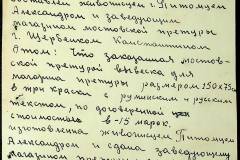 доставлен живописцем г. Питомцем
Александром и заведующим
магазином мостовской претуры
г. Щербенком Константином
в том: Что заказанная мостов-
ской претурой вывеска для
магазина претуры размером 150х75см
в три краски с румынским и русским
текстом, по договоренной
стоимостью в -15 марок.
изготовлена живописцем Питомцем
Александром и сдана заведующему
магазином